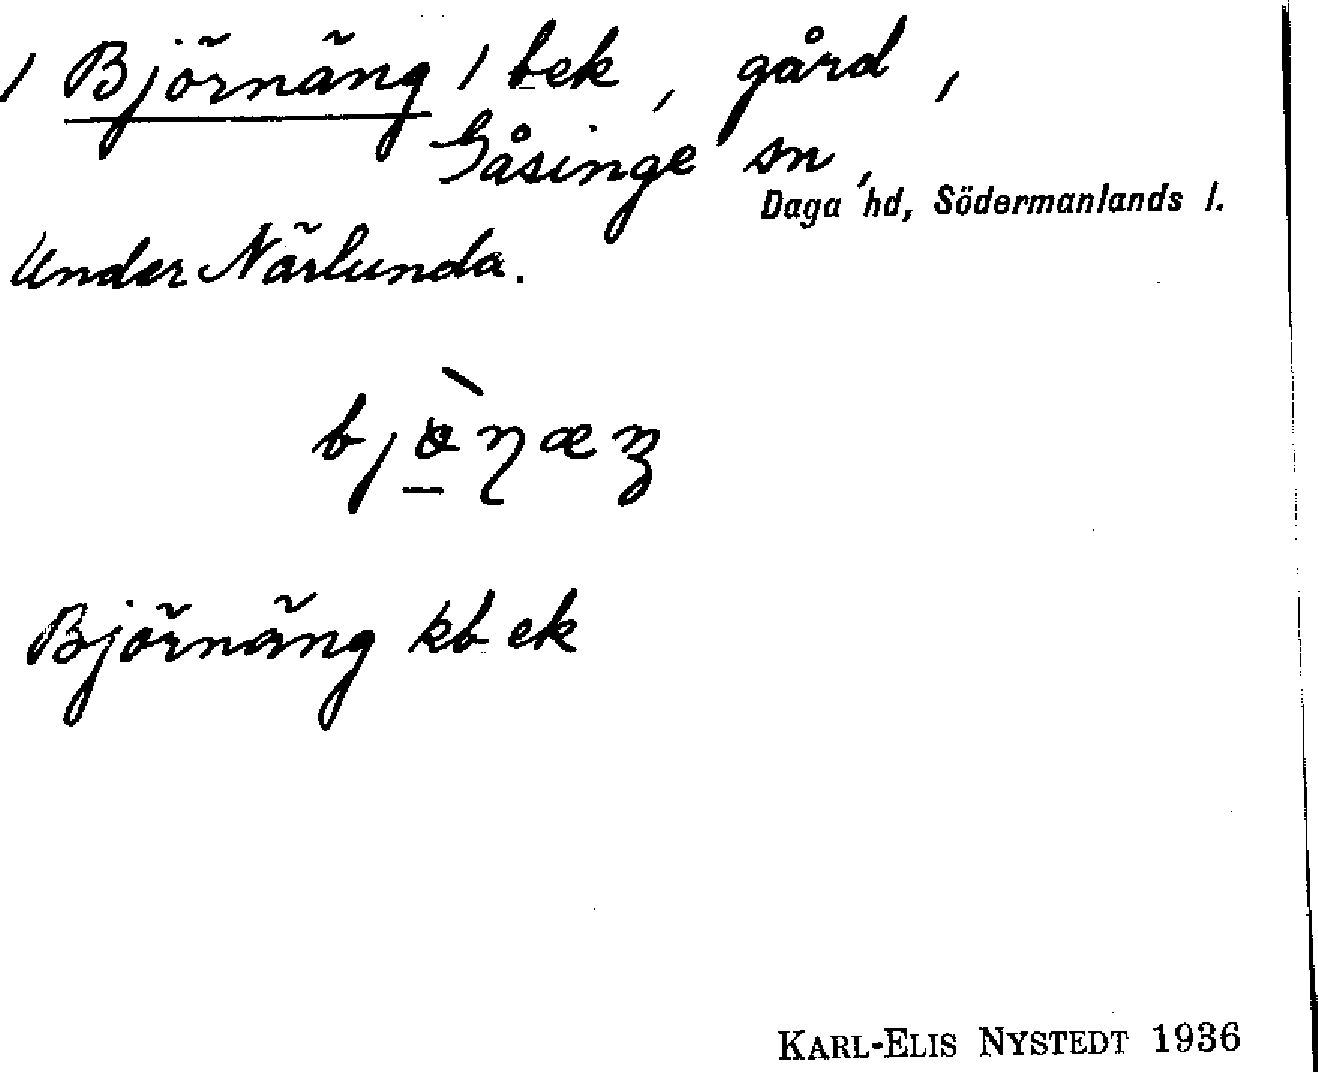 / Björnäng / bek, gård,
Gåsinge sn,
Daga hd, Södermanlands l.
Under Närlunda.
Björnäng kb ek
KARL-ELIS NYSTEDT 1936